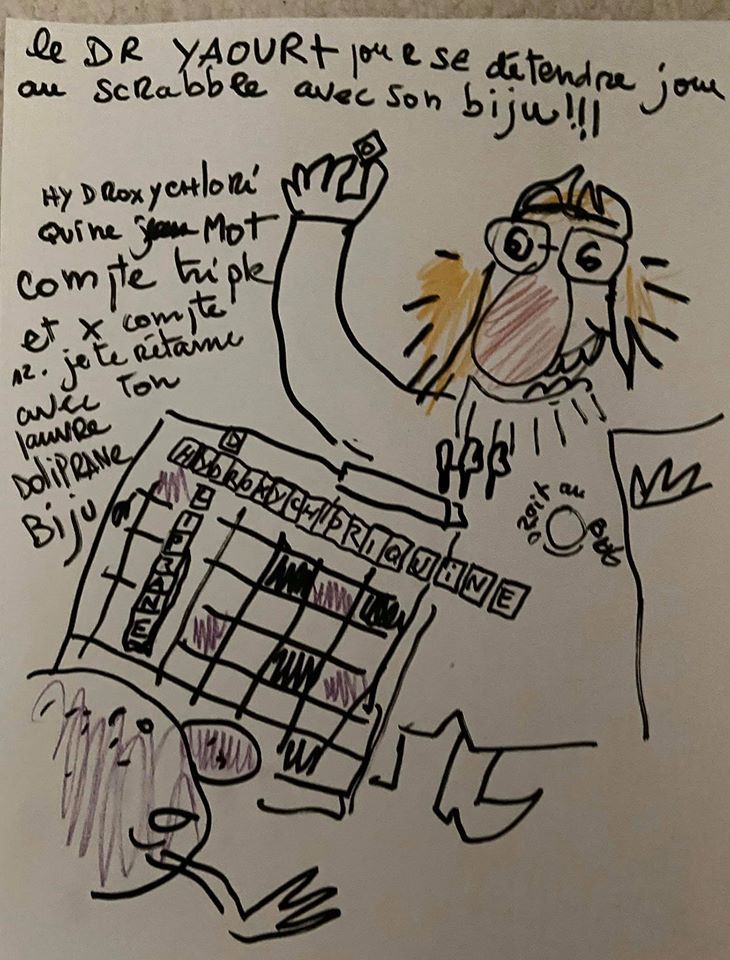 le DR YAOURt pour se détendre joue
au scRabble avec son biju!!!
HYDROXYCHLORI
QUINE MOT
compte triple
et X compte
12. je te rétame
avec Ton
pauvre
DOLIPRANE
Biju
D
HYDROXYCHLORIQUINE
L
I
P
R
A
N
E
Droit au BUT